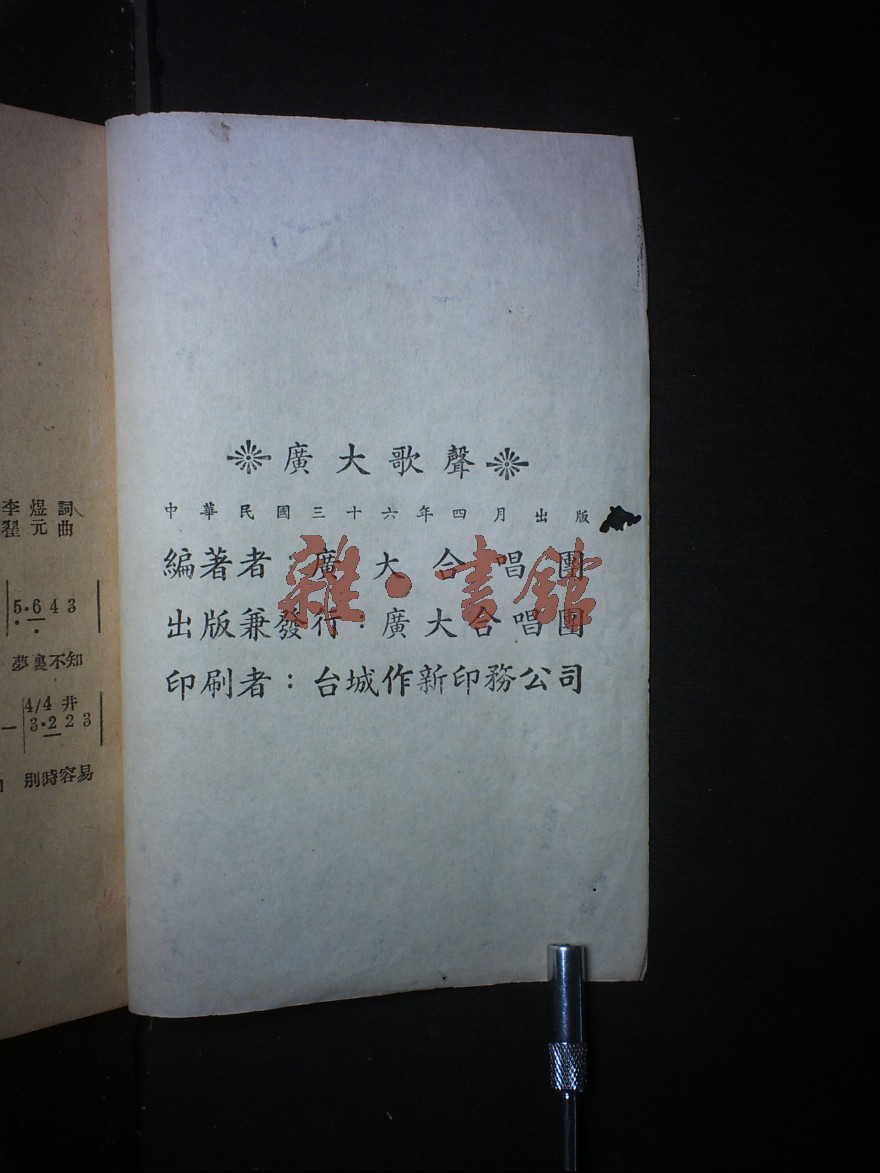 李煜詞
翟元曲
5·6 4 3
夢裏不知
4/4 井
— 3·2 2 3
別時容易
廣大歌聲
中華民國三十六年四月出版
編著者：廣大合唱團
出版兼發行：廣大合唱團
印刷者：台城作新印務公司
雜·書館